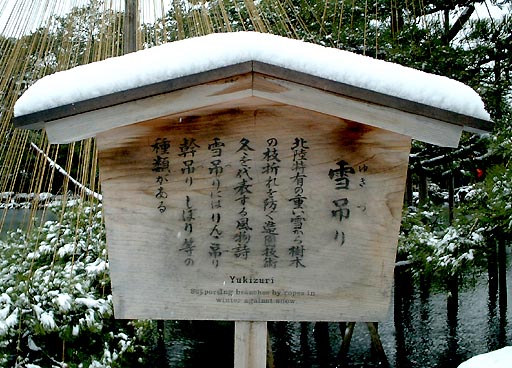 雪吊り
ゆきづり
北陸特有の重い雪から樹木
の枝折れを防ぐ造園技術
冬を代表する風物詩
雪吊りにはりんご吊り
幹吊り しぼり 等の
種類がある
Yukizuri
Supporting branches by ropes in
winter against snow